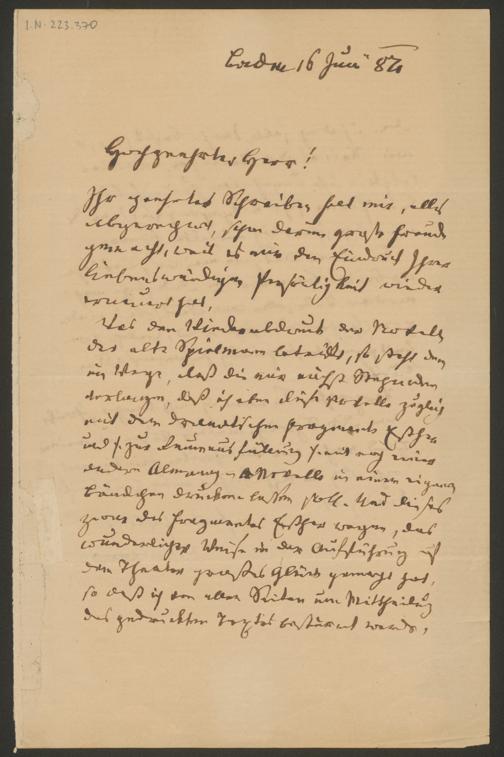 I.N. 223.370
Baden 16 Juni
Hochgeehrter Herr!
Ihr geehrtes Schreiben hat mir, alles
abgerechnet, schon darum große Freude
gemacht, weil es mir den Eindruck Ihrer
liebenswürdigen Persönlichkeit wieder
erneuert hat.
Was den Wiederabdruck der Novelle
der alte Spielmann betrifft, so steht dem
im Wege, daß die mir nächst Stehenden
verlangen, daß ich eben diese Novelle zugleich
mit dem dramatischen Fragmente Esther
und zur Raumausfüllung mit noch einer
andern Almanach Novelle in einem eigenen
Bändchen drucken lassen soll. Und dieses
zwar des Fragmentes Esther wegen, das
wunderlicher Weise in der Aufführung auf
dem Theater großes Glück gemacht hat,
so daß ich von allen Seiten um Mittheilung
des gedruckten Textes bestürmt werde,